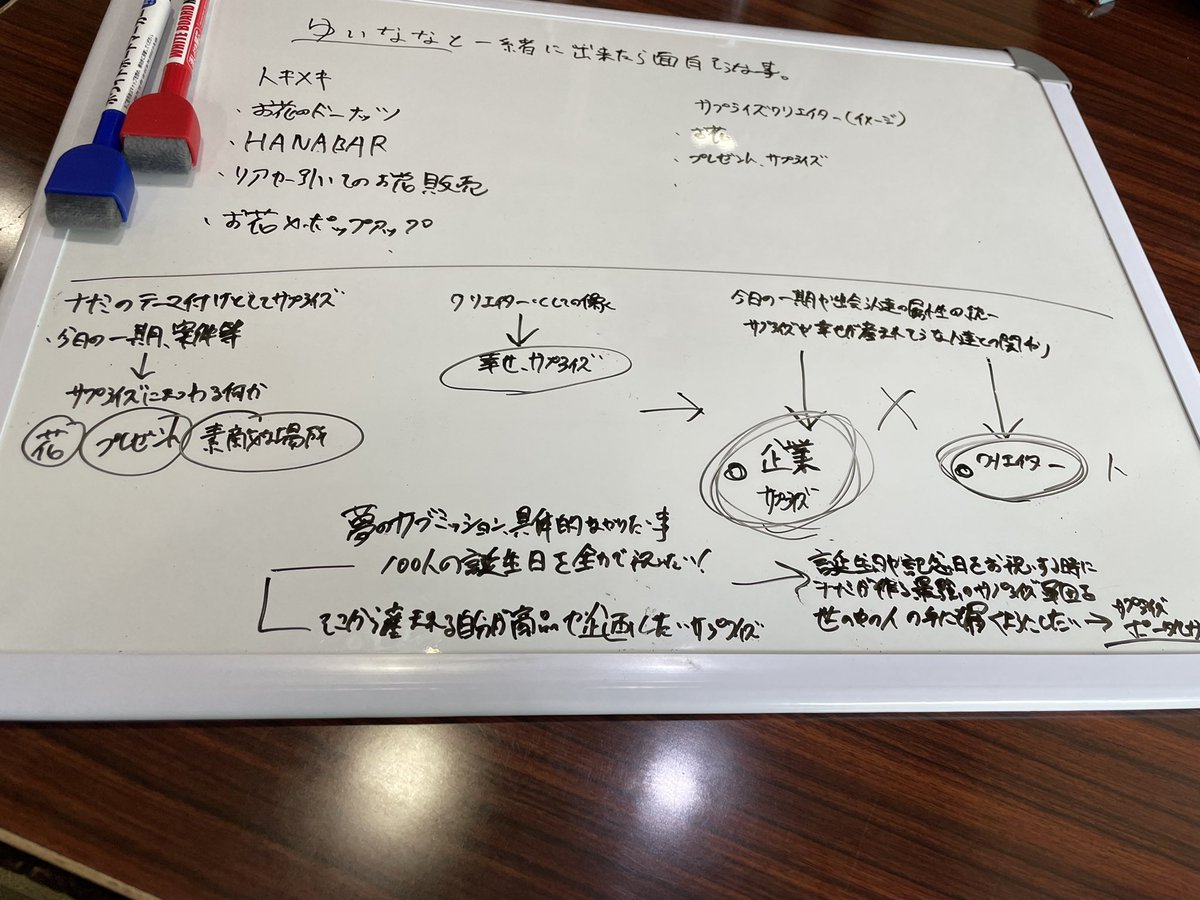 WHITE BOARD MA
ゆいななと一緒に出来たら面白そうな事。
トキメキ
・お花のドーナッツ
・HANABAR
・リアカー引いてのお花販売
・お花×ポップアップ
サプライズクリエイター(イメージ)
・お花
・プレゼント、サプライズ
ナナミのテーマ付けとしてサプライズ
・今日の一期、案件等
↓
サプライズにまつわる何か
花 プレゼント 素敵な場所
クリエイターとしての像
↓
幸せ、サプライズ
今日の一期や出会う人達の属性の統一
サプライズや幸せが産まれてそうな人達との関わり
→ 企業 サプライズ × クリエイター
夢のサブミッション、具体的なやりたい事
100人の誕生日を全力で祝いたい!
そこから産まれる自分が商品や企画したいサプライズ
→ 誕生日や記念日をお祝いする時に
が作る最強のサプライズ軍団を
世の中の人の手に届くようにしたい→サプライズ